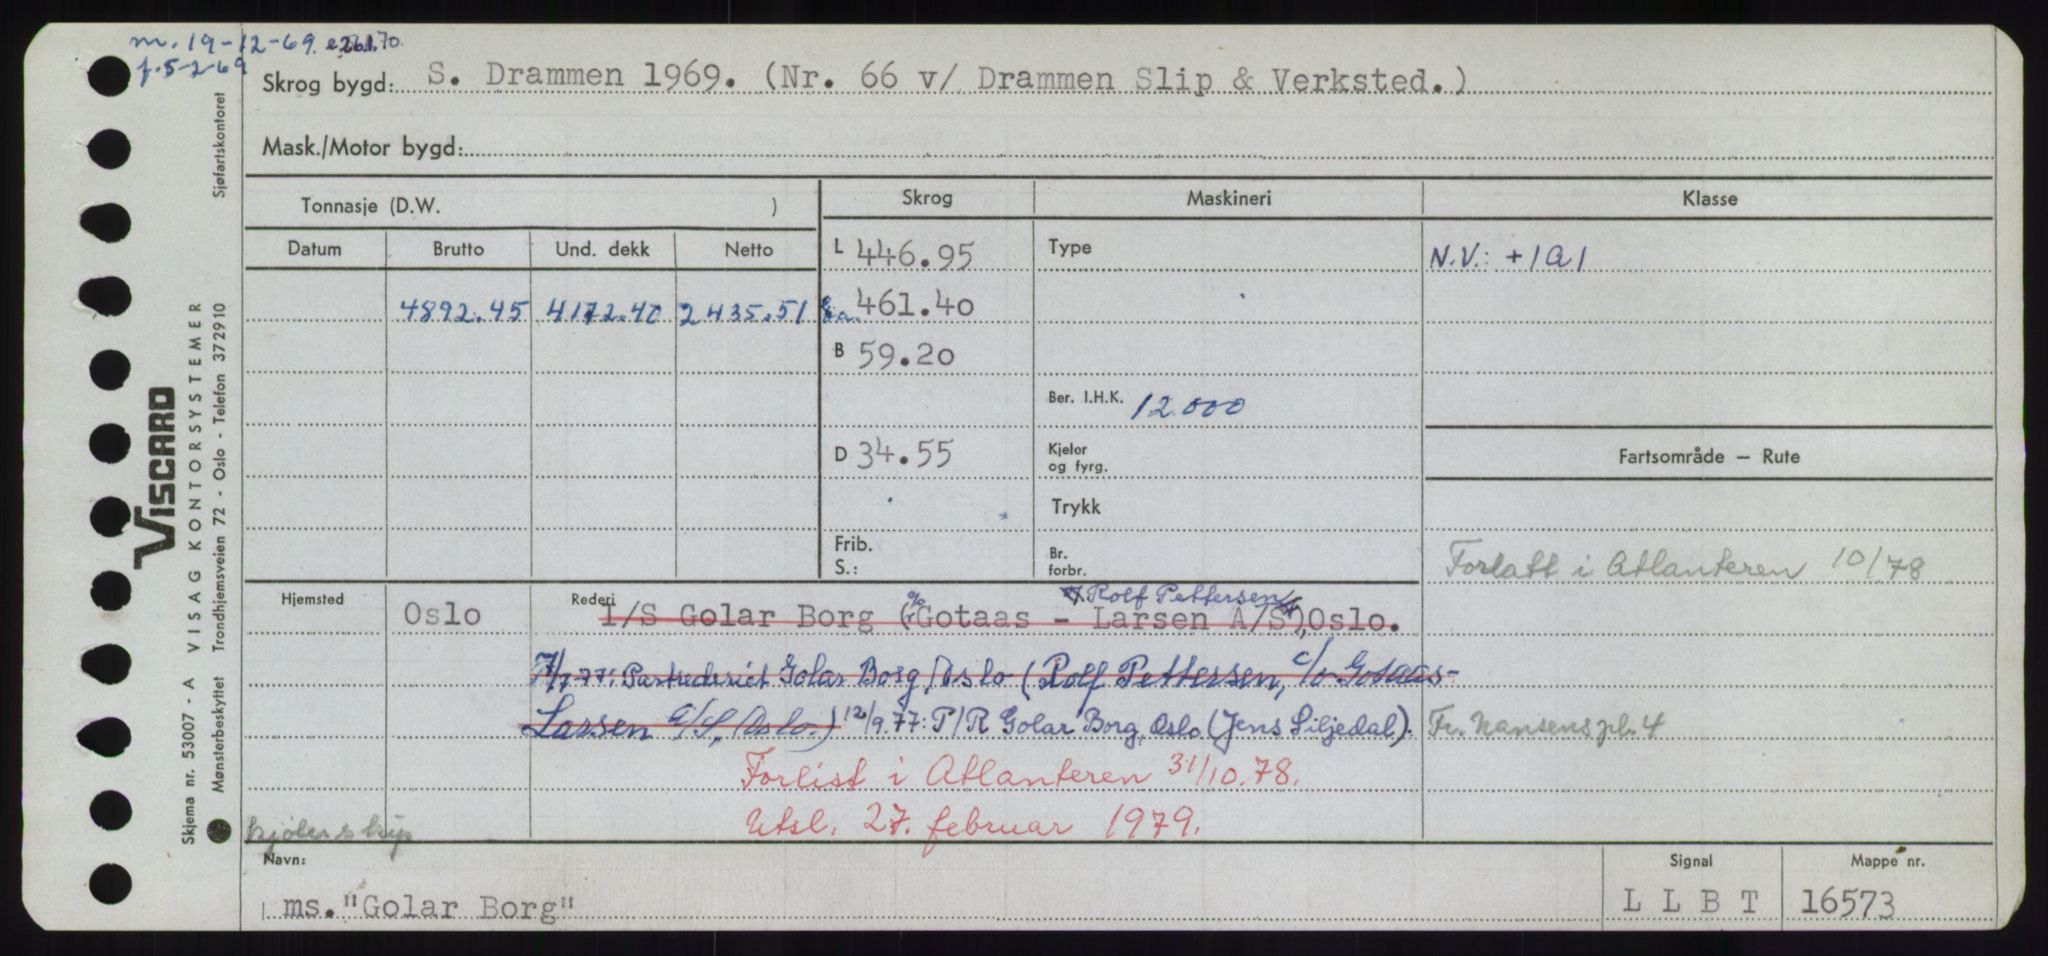 m. 19-12-69. e 26.1.70.
f. 5-2-69
Skrog bygd: S. Drammen 1969. (Nr. 66 v/ Drammen Slip & Verksted.)
Mask./Motor bygd:
Tonnasje (D.W. )
Skrog
Maskineri
Klasse
Datum Brutto Und. dekk Netto
L 446.95
Type
N.V.: +1A1
4892.45 4172.40 2435.51
461.40
B 59.20
Ber. I.H.K. 12.000
D 34.55
Kjeler og fyrg.
Fartsområde – Rute
Trykk
Frib.
S.:
Br. forbr.
Forlatt i Atlanteren 10/78
Hjemsted Oslo
Rederi
% v/Rolf Pettersen
I/S Golar Borg (Gotaas - Larsen A/S), Oslo.
7/7-77: Partrederiet Golar Borg, Oslo (Rolf Pettersen, c/o Gotaas-
Larsen A/S, Oslo.) 12/9.77: P/R Golar Borg, Oslo (Jens Siljedal). Fr. Nansens pl. 4
Forlist i Atlanteren 31/10.78.
Utsl. 27. februar 1979.
kjøleskip
Navn:
ms. "Golar Borg"
Signal
L L B T
Mappe nr.
16573
VISCARD
Skjema nr. 53007 - A VISAG KONTORSYSTEMER
Mønsterbeskyttet Trondhjemsveien 72 - Oslo - Telefon 372910 Sjøfartskontoret